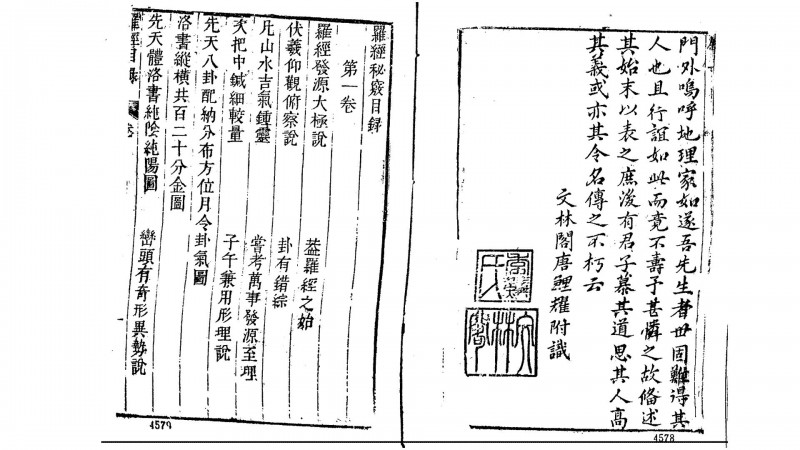 門外嗚呼地理家如遂吾先生者世固難得其
人也且行誼如此而竟不壽予甚憐之故備述
其始末以表之庶後有君子慕其道思其人高
其義或亦其令名傳之不朽云
文林閣唐鯉耀附識
文林閣
4578
羅經秘竅目録
第一卷
羅經發源太極說
葢羅經之始
伏羲仰觀俯察說
卦有錯綜
凡山水吉氣鍾靈
嘗考萬事發源至理
天把中鍼細較量
子午兼用形理說
先天八卦配納分布方位月令卦氣圖
洛書縱橫共百二十分金圖
先天體洛書純陰純陽圖
巒頭有奇形異勢說
羅經目錄
卷
4579